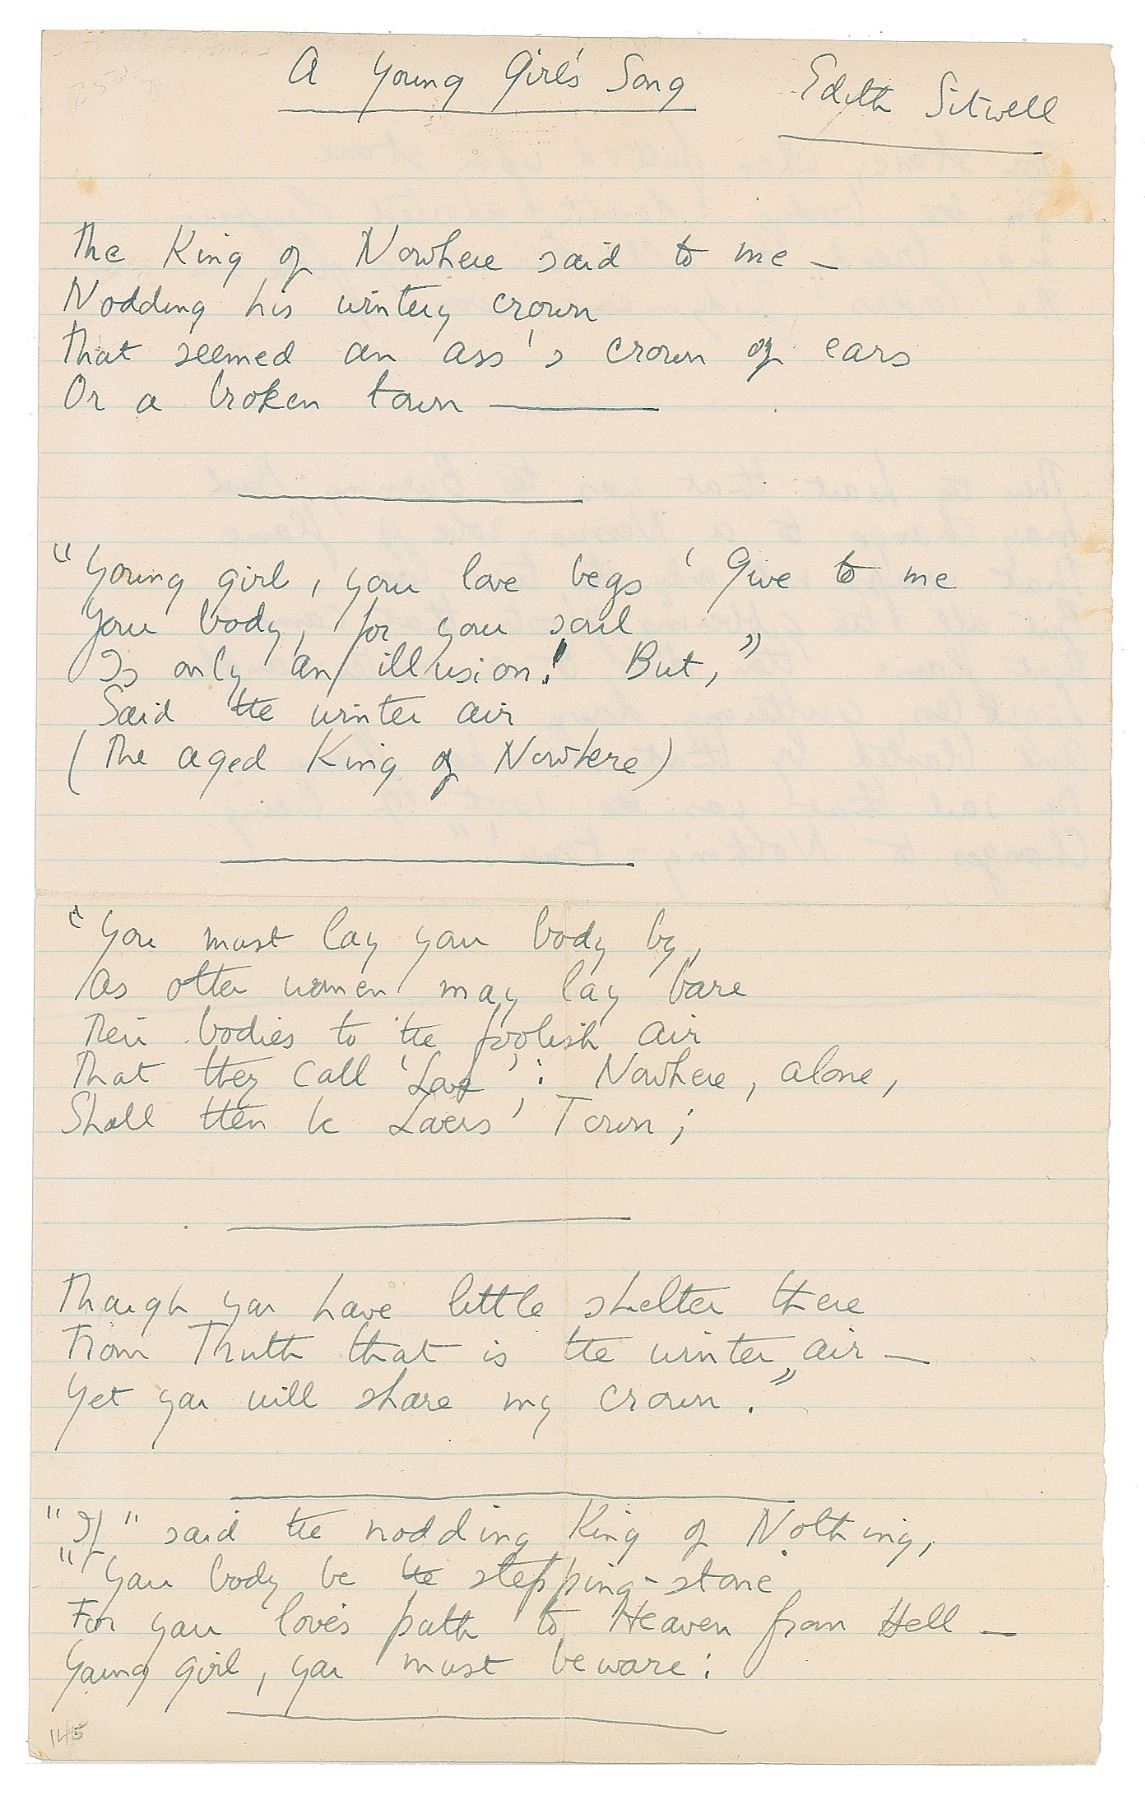 A Young Girl's Song Edith Sitwell
The King of Nowhere said to me —
Nodding his wintry crown
That seemed an ass's crown of ears
Or a broken town ———
"Young girl, your love begs 'Give to me
Your body, for your soul
Is only an illusion! But,"
Said the winter air
(The aged King of Nowhere)
"You must lay your body by,
As other women may lay bare
Their bodies to the foolish air
That they call 'Love': Nowhere, alone,
Shall then be Lovers' Town;
Though you have little shelter there
From Truth that is the winter air —
Yet you will share my crown."
"If" said the nodding King of Nothing,
"Your body be the stepping-stone
For your love's path to Heaven from Hell —
Young girl, you must beware:
145